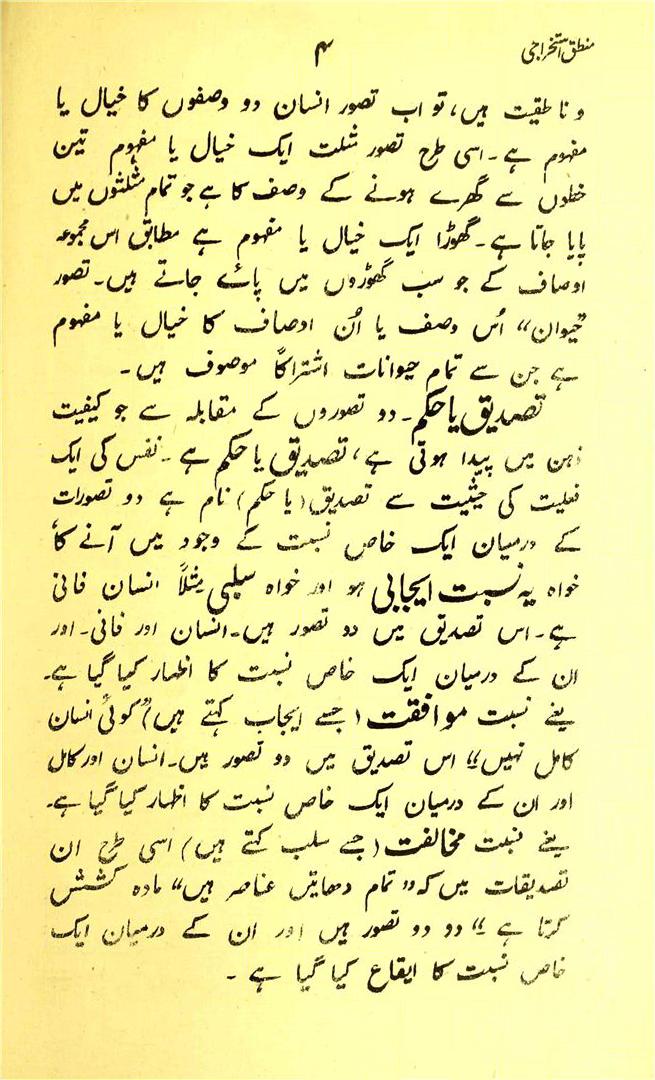 منطق استخراجی
۴
و ناطقیت ہیں، تو اب تصور انسان دو وصفوں کا خیال یا
مفہوم ہے۔ اسی طرح تصور مثلث ایک خیال یا مفہوم تین
خطوں سے گھرے ہونے کے وصف کا ہے جو تمام مثلثوں میں
پایا جاتا ہے۔ گھوڑا ایک خیال یا مفہوم ہے مطابق اس مجموعہ
اوصاف کے جو سب گھوڑوں میں پائے جاتے ہیں۔ تصور
"حیوان" اُس وصف یا اُن اوصاف کا خیال یا مفہوم
ہے جن سے تمام حیوانات اشتراکاً موصوف ہیں۔
تصدیق یا حکم۔ دو تصوروں کے مقابلہ سے جو کیفیت
ذہن میں پیدا ہوتی ہے، تصدیق یا حکم ہے۔ نفس کی ایک
فعلیت کی حیثیت سے تصدیق (یا حکم) نام ہے دو تصورات
کے درمیان ایک خاص نسبت کے وجود میں آنے کا،
خواہ یہ نسبت ایجابی ہو اور خواہ سلبی مثلاً انسان فانی
ہے۔ اس تصدیق میں دو تصور ہیں۔ انسان اور فانی۔ اور
ان کے درمیان ایک خاص نسبت کا اظہار کیا گیا ہے۔
یعنے نسبت موافقت (جسے ایجاب کہتے ہیں) "کوئی انسان
کامل نہیں" اس تصدیق میں دو تصور ہیں۔ انسان اور کامل
اور ان کے درمیان ایک خاص نسبت کا اظہار کیا گیا ہے۔
یعنے نسبت مخالفت (جسے سلب کہتے ہیں) اسی طرح ان
تصدیقات میں کہ "تمام دھاتیں عناصر ہیں" مادہ کشش
کرتا ہے" دو دو تصور ہیں اور ان کے درمیان ایک
خاص نسبت کا ایقاع کیا گیا ہے۔